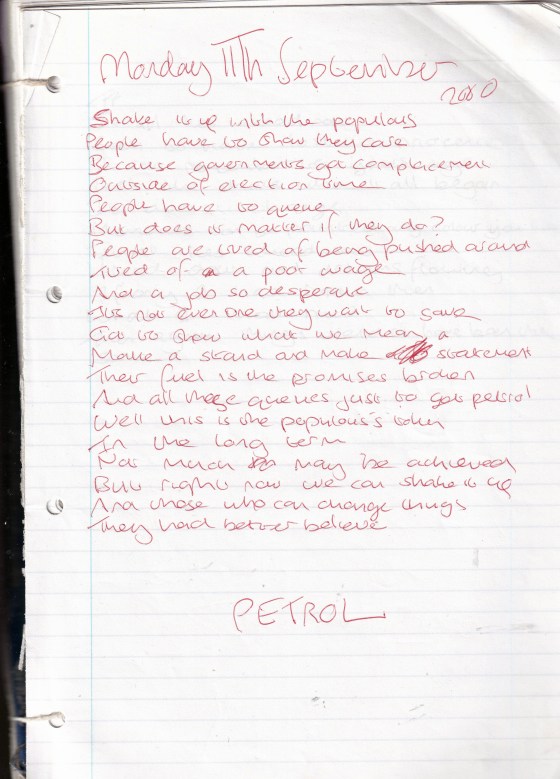 Monday 11Th September
2000
Shake it up with the populous
People have to show they care
Because governments get complacement
Outside of election time
People have to queue
But does it matter if they do?
People are tired of being pushed around
Tired of a poor wage
And a job so desperate
Its not even one they want to save
Got to show what we mean
Make a stand and make a statement
Their fuel is the promises broken
And all these queues just to get petrol
Well this is the populous's token
In the long term
Not much may be achieved
But right now we can shake it up
And those who can change things
They had better believe
PETROL